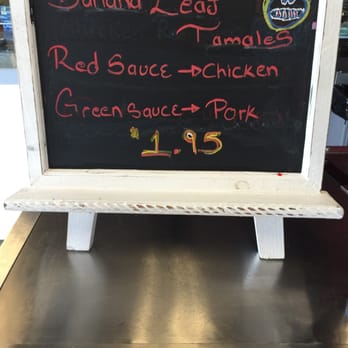 Banana Leaf
Tamales
Red Sauce → Chicken
Green Sauce → Pork
$1.95